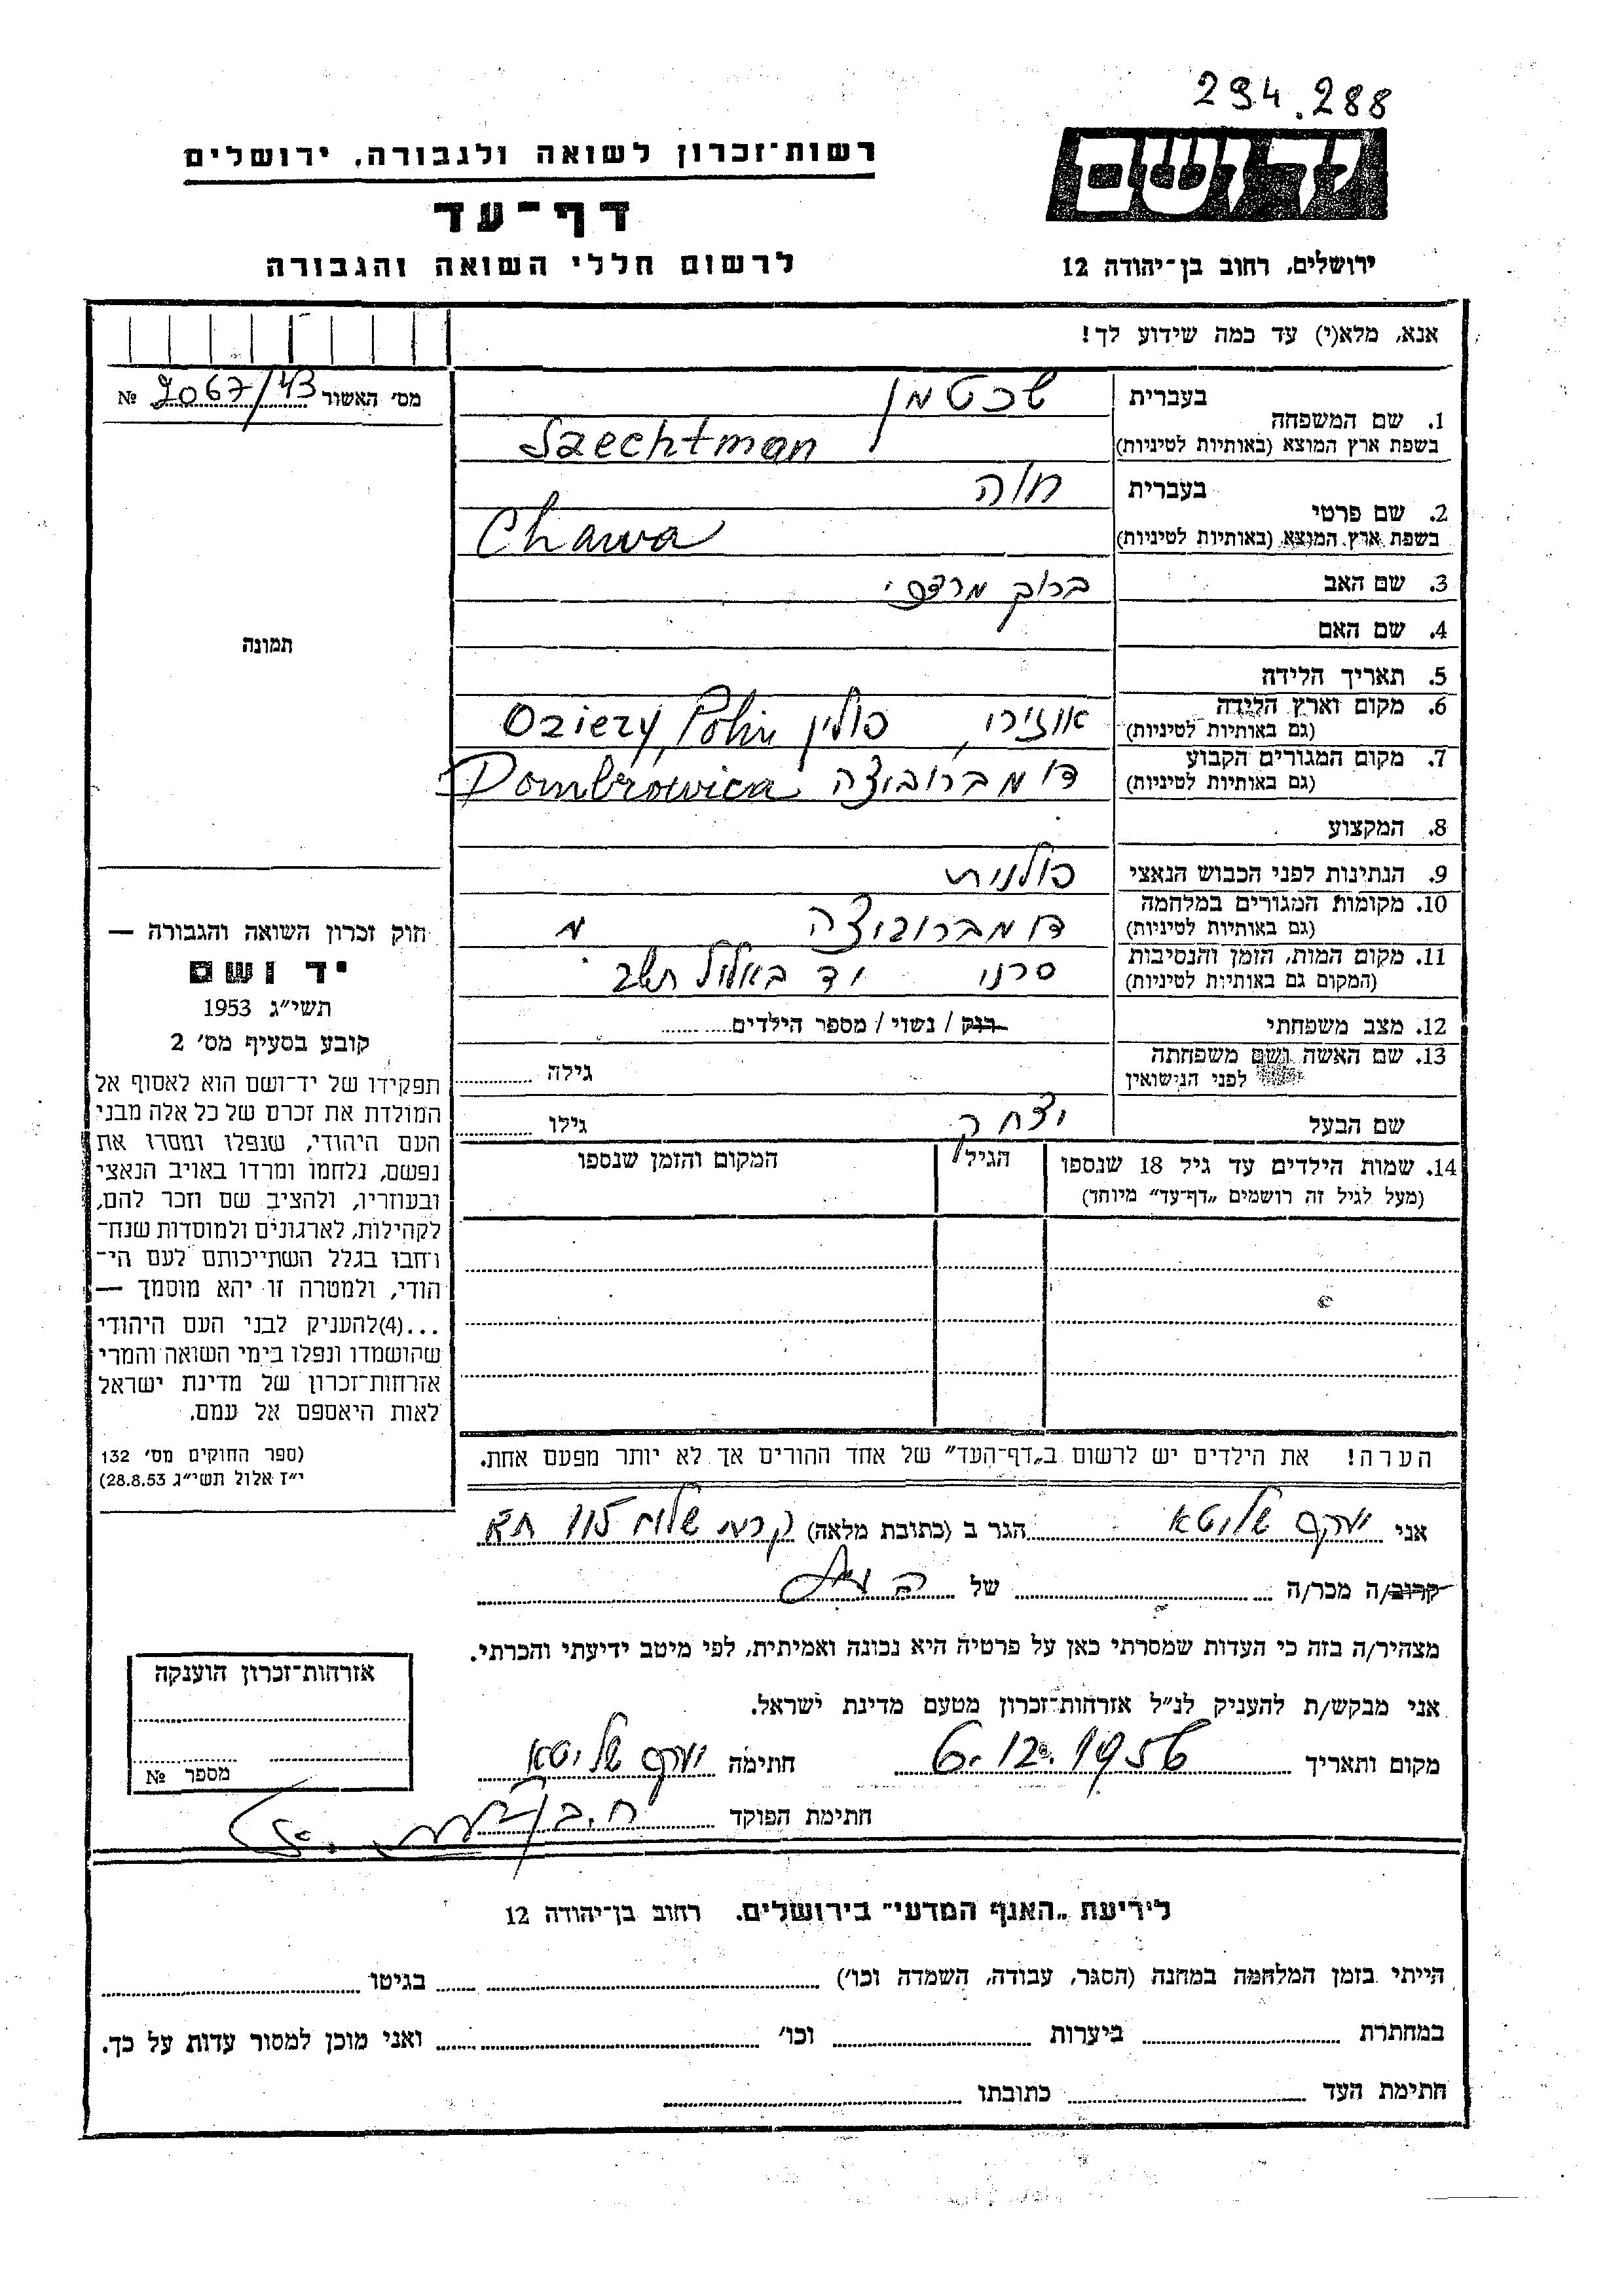 294.288
רשות-זכרון לשואה ולגבורה, ירושלים
ידושם
דף-עד
לרשום חללי השואה והגבורה
ירושלים, רחוב בן-יהודה 12
אנא, מלא(י) עד כמה שידוע לך!
מס׳ האשור 2067/43 №
תמונה
1. שם המשפחה
בעברית שכטמן
בשפת ארץ המוצא (באותיות לטיניות) Szechtman
2. שם פרטי
בעברית חוה
בשפת ארץ המוצא (באותיות לטיניות) Chawa
3. שם האב ברוך מרדכי
4. שם האם
5. תאריך הלידה
6. מקום וארץ הלידה (גם באותיות לטיניות) אוזירי, פולין Oziery, Polin
7. מקום המגורים הקבוע (גם באותיות לטיניות) דומברוביצה Dombrowica
8. המקצוע
9. הנתינות לפני הכבוש הנאצי פולנית
10. מקומות המגורים במלחמה (גם באותיות לטיניות) דומברוביצה
11. מקום המות, הזמן והנסיבות (המקום גם באותיות לטיניות) סרני יד באלול תש״ב
12. מצב משפחתי רווק / נשוי / מספר הילדים
13. שם האשה ושם משפחתה לפני הנישואין גילה
שם הבעל יצחק גילו
14. שמות הילדים עד גיל 18 שנספו הגיל המקום והזמן שנספו
(מעל לגיל זה רושמים „דף-עד״ מיוחד)
הערה! את הילדים יש לרשום ב„דף-העד״ של אחד ההורים אך לא יותר מפעם אחת.
חוק זכרון השואה והגבורה —
יד ושם
תשי״ג 1953
קובע בסעיף מס׳ 2
תפקידו של יד-ושם הוא לאסוף אל
המולדת את זכרם של כל אלה מבני
העם היהודי, שנפלו ומסרו את
נפשם, נלחמו ומרדו באויב הנאצי
ובעוזריו, ולהציב שם וזכר להם,
לקהילות, לארגונים ולמוסדות שנח-
רחבו בגלל השתייכותם לעם הי-
הודי, ולמטרה זו יהא מוסמך —
...(4)להעניק לבני העם היהודי
שהושמדו ונפלו בימי השואה והמרי
אזרחות-זכרון של מדינת ישראל
לאות היאספם אל עמם.
(ספר החוקים מס׳ 132
י״ז אלול תשי״ג 28.8.53)
אני יעקב שליטא הגר ב (כתובת מלאה) קרית שלום 115 תא
קרוב/ה מכר/ה של
מצהיר/ה בזה כי העדות שמסרתי כאן על פרטיה היא נכונה ואמיתית, לפי מיטב ידיעתי והכרתי.
אני מבקש/ת להעניק לנ״ל אזרחות-זכרון מטעם מדינת ישראל.
מקום ותאריך 6.12.1956 חתימה יעקב שליטא
חתימת הפוקד
אזרחות-זכרון הוענקה
מספר №
לידיעת „האגף המדעי״ בירושלים. רחוב בן-יהודה 12
הייתי בזמן המלחמה במחנה (הסגר, עבודה, השמדה וכו׳) בגיטו
במחתרת ביערות וכו׳ ואני מוכן למסור עדות על כך.
חתימת העד כתובתו